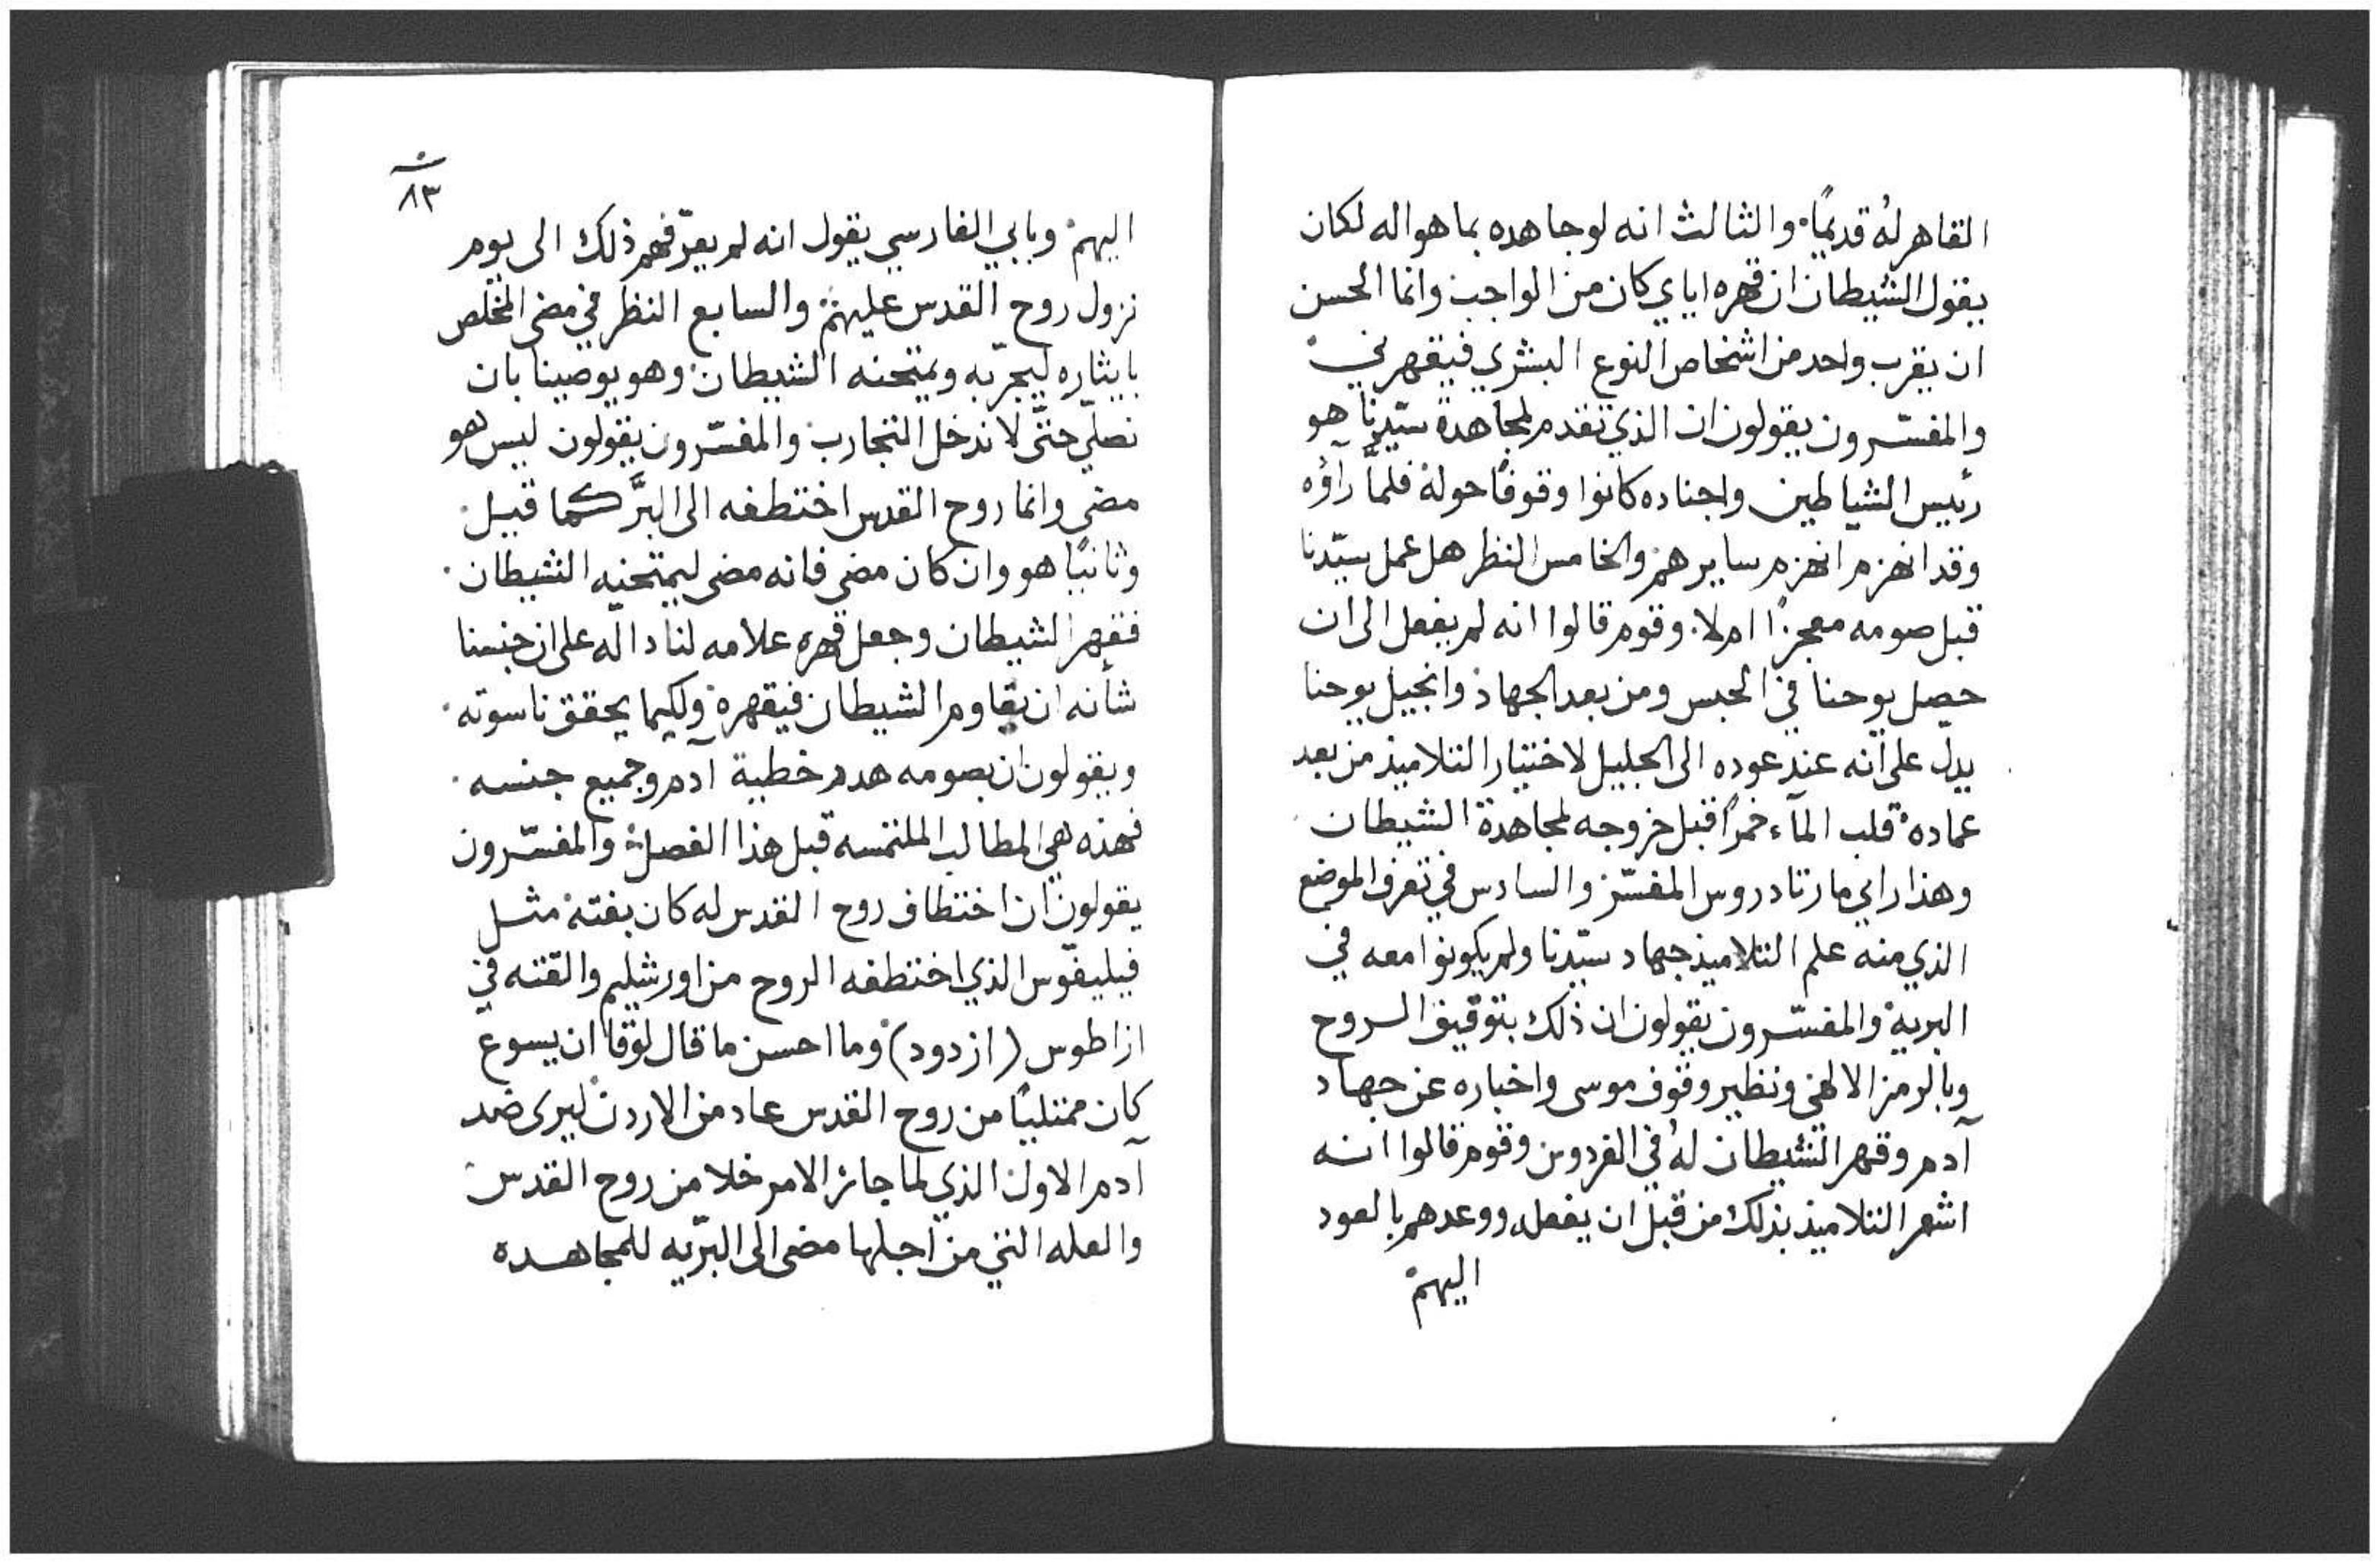 القاهر لهُ قديمًا والثالث انه لو جاهده بما هو اله لكان
يقول الشيطان ان قهره اياي كان من الواجب وانما الحسن
ان يقرب واحد من اشخاص النوع البشري فيقهرني
والمفسّرون يقولون ان الذي تقدم لمجاهدة سيّدنا هو
رئيس الشياطين واجناده كانوا وقوفًا حوله فلمَّا رآؤه
وقد انهزم انهزم سايرهم والخامس النظر هل عمل سيّدنا
قبل صومه معجزًا ام لا وقوم قالوا انه لم يفعل الى ان
حصل يوحنا في الحبس ومن بعد الجهاد وانجيل يوحنا
يدل على انه عند عوده الى الجليل لاختيار التلاميذ من بعد
عماده قلب المآء خمرًا قبل خروجه لمجاهدة الشيطان
وهذا راي مار تادروس المفسّر والسادس في تعرف الموضع
الذي منه علم التلاميذ جهاد سيّدنا ولم يكونوا معه في
البريه والمفسّرون يقولون ان ذلك بتوقيف الروح
وبالرمز الالهي ونظير وقوف موسى واخباره عن جهاد
آدم وقهر الشيطان لهُ في الفردوس وقوم قالوا انه
اشعر التلاميذ بذلك من قبل ان يفعله ووعدهم بالعود
اليهم
٨٣
اليهم وبابي الفارسي يقول انه لم يعرّفهم ذلك الى يوم
نزول روح القدس عليهم والسابع النظر في مضى المخلّص
بايثاره ليجرّبه ويمتحنه الشيطان وهو يوصينا بان
نصلّي حتَّى لا ندخل التجارب والمفسّرون يقولون ليس هو
مضى وانما روح القدس اختطفه الى البرَّ كما قيل
وثانيًا هو وان كان مضى فانه مضى ليمتحنه الشيطان
فقهر الشيطان وجعل قهره علامه لنا داله على ان جنسنا
شأنه ان يقاوم الشيطان فيقهره ولكيما يحقق ناسوته
ويقولون ان بصومه هدم خطية آدم وجميع جنسه
فهذه هي المطالب الملتمسه قبل هذا الفصل والمفسّرون
يقولون ان اختطاف روح القدس له كان بغته مثل
فيليفّوس الذي اختطفه الروح من اورشليم والقته في
ازاطوس (ازدود) وما احسن ما قال لوقا ان يسوع
كان ممتليًا من روح القدس عاد من الاردن ليرى ضد
آدم الاول الذي لما جائز الامر خلا من روح القدس
والعله التي من اجلها مضى الى البرّيه للمجاهده